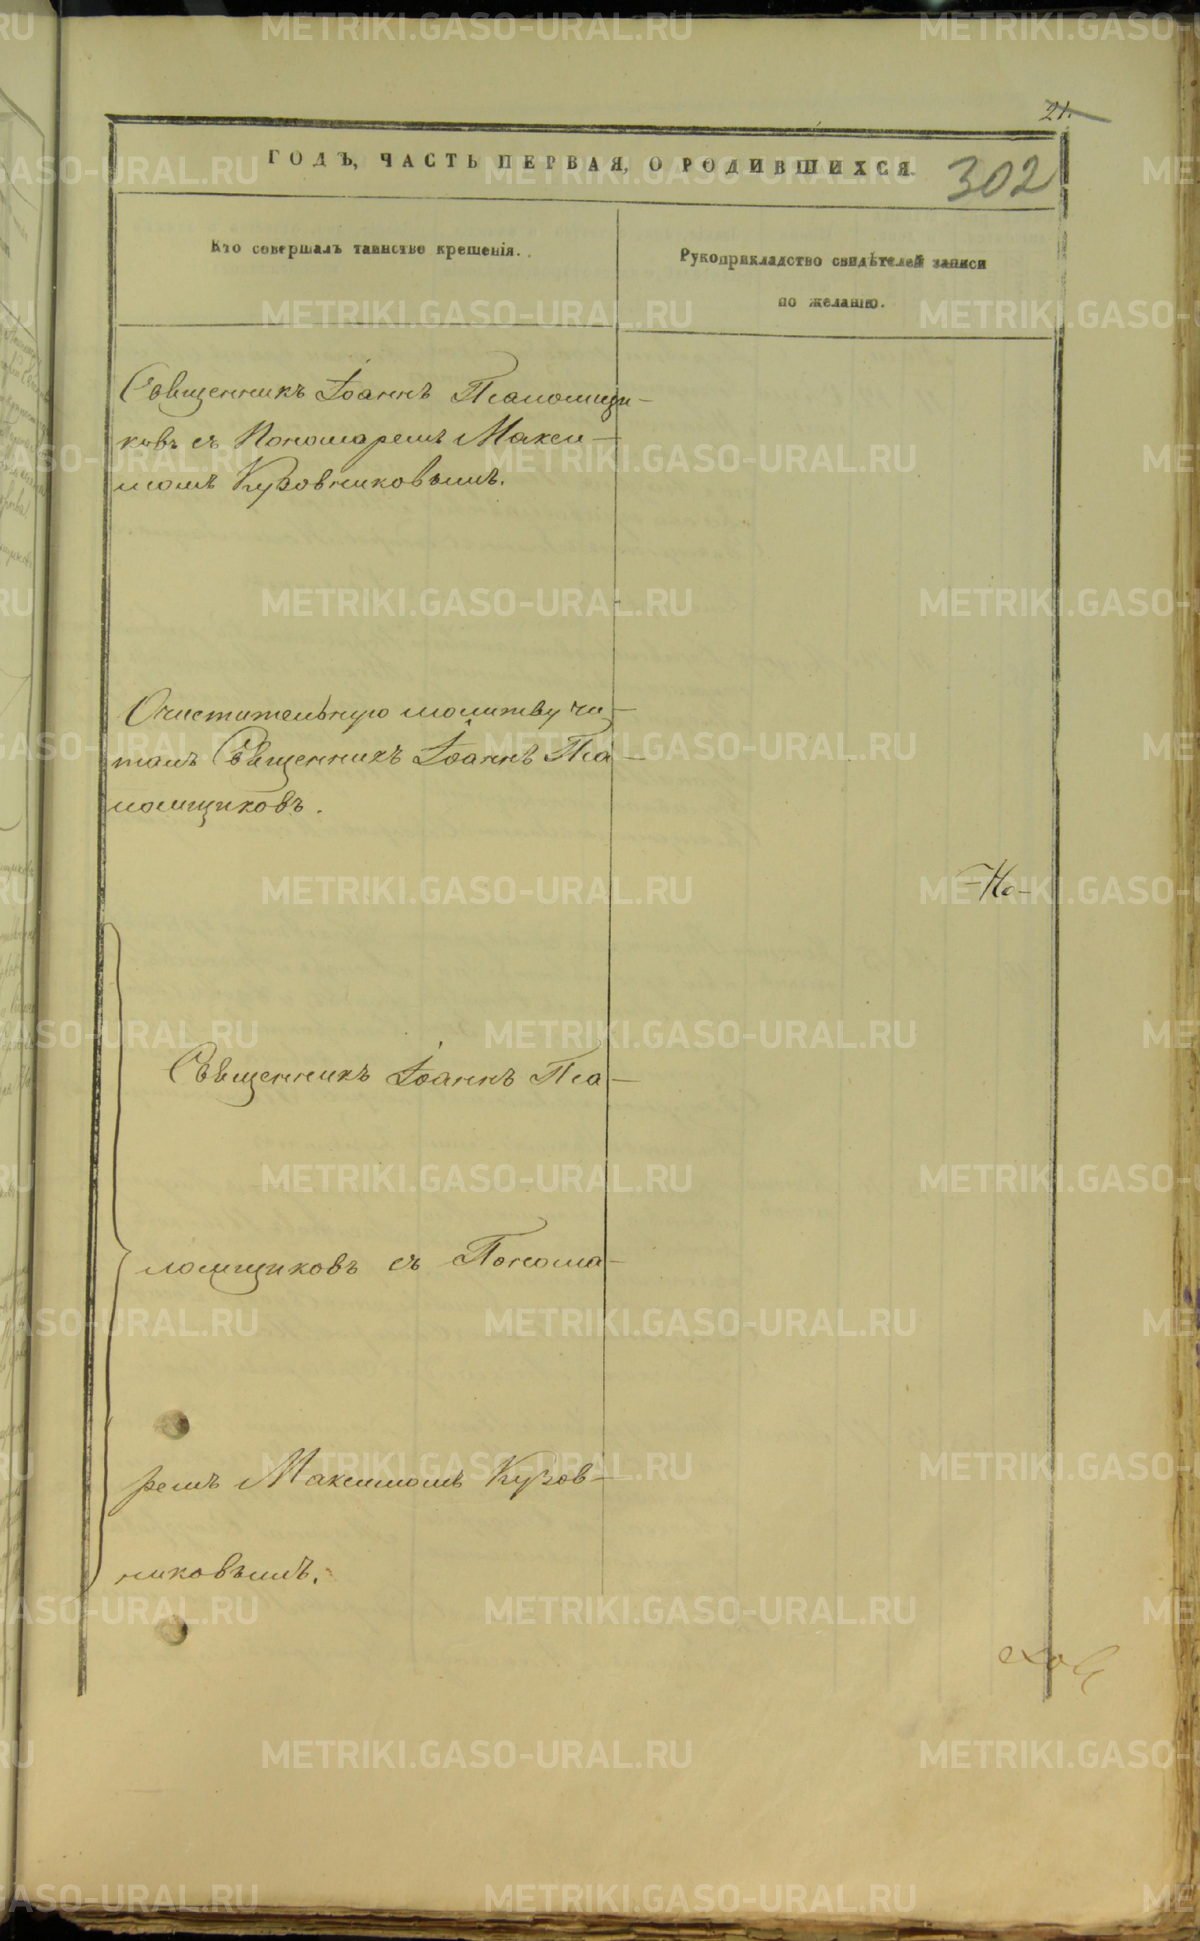 21.
ГОДЪ, ЧАСТЬ ПЕРВАЯ, О РОДИВШИХСЯ.
302
Кто совершалъ таинство крещенія.
Рукоприкладство свидѣтелей записи
по желанію.
Священникъ Іоаннъ Паломщи-
ковъ съ Пономаремъ Макси-
момъ Кузовниковымъ.
Очистительную молитву чи-
талъ Священникъ Іоаннъ Па-
ломщиковъ.
-Но-
Священникъ Іоаннъ Па-
ломщиковъ съ Понома-
ремъ Максимомъ Кузов-
никовымъ.
METRIKI.GASO-URAL.RU